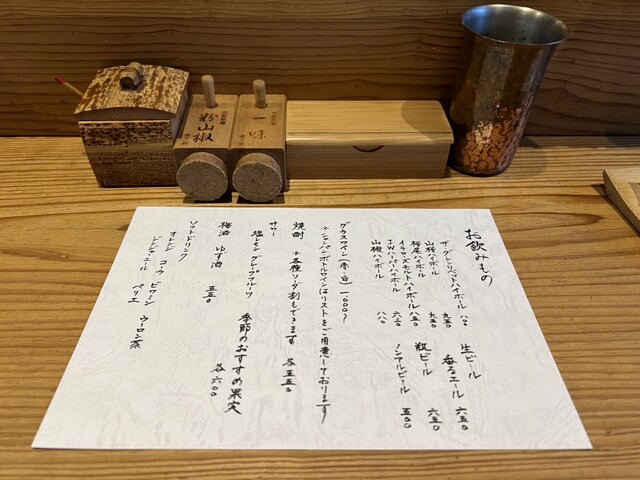 粉山椒
一味
お飲みもの
ザ・グレンリベットハイボール 八〇〇
山崎ハイボール 九五〇
桜尾ハイボール 九五〇
イチローズモルトハイボール 八五〇
I.W.ハーパーハイボール 六三〇
山椒ハイボール 八八〇
生ビール 六五〇
香るエール 六五〇
瓶ビール
ノンアルビール 五〇〇
グラスワイン(赤・白) 一、〇〇〇〜
*シャンパン、ボトルワインはリストをご用意しております
焼酎 *各種ソーダ割もできます 各五五〇
サワー
塩レモン グレープフルーツ 季節のおすすめ果実 各六〇〇
梅酒 ゆず酒 五五〇
ソフトドリンク
オレンジ コーラ ビタミン ウーロン茶
ジンジャエール ペリエ